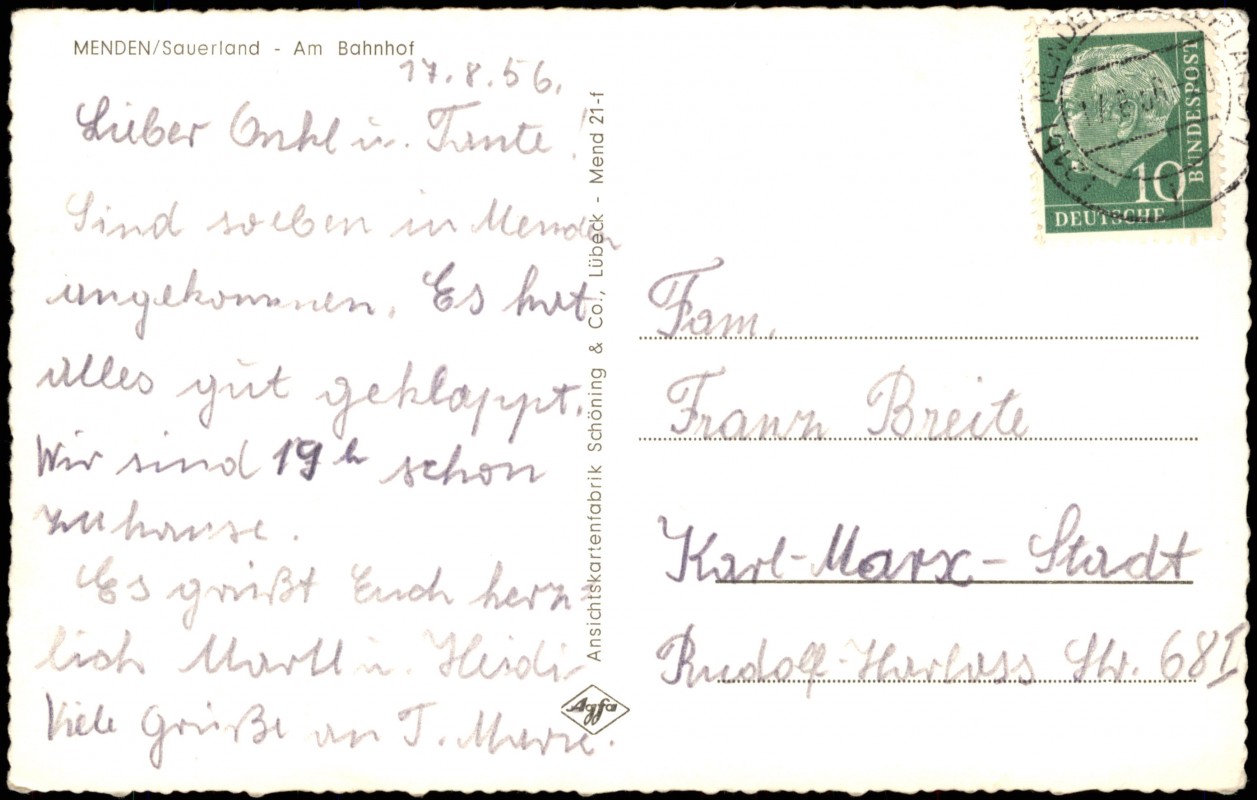 MENDEN/Sauerland - Am Bahnhof
17.8.56.
Lieber Onkl u. Tante!
Sind soeben in Menden
angekommen. Es hat
alles gut geklappt.
Wir sind 19h schon
zuhause.
Es grüßt Euch herz-
lich Martl u. Heidi
Viele Grüße an T. Marie.
Ansichtskartenfabrik Schöning & Co., Lübeck - Mend 21-f
Agfa
10
DEUTSCHE
BUNDESPOST
Fam.
Franz Breite
Karl-Marx-Stadt
Rudolf-Harlass Str. 68I